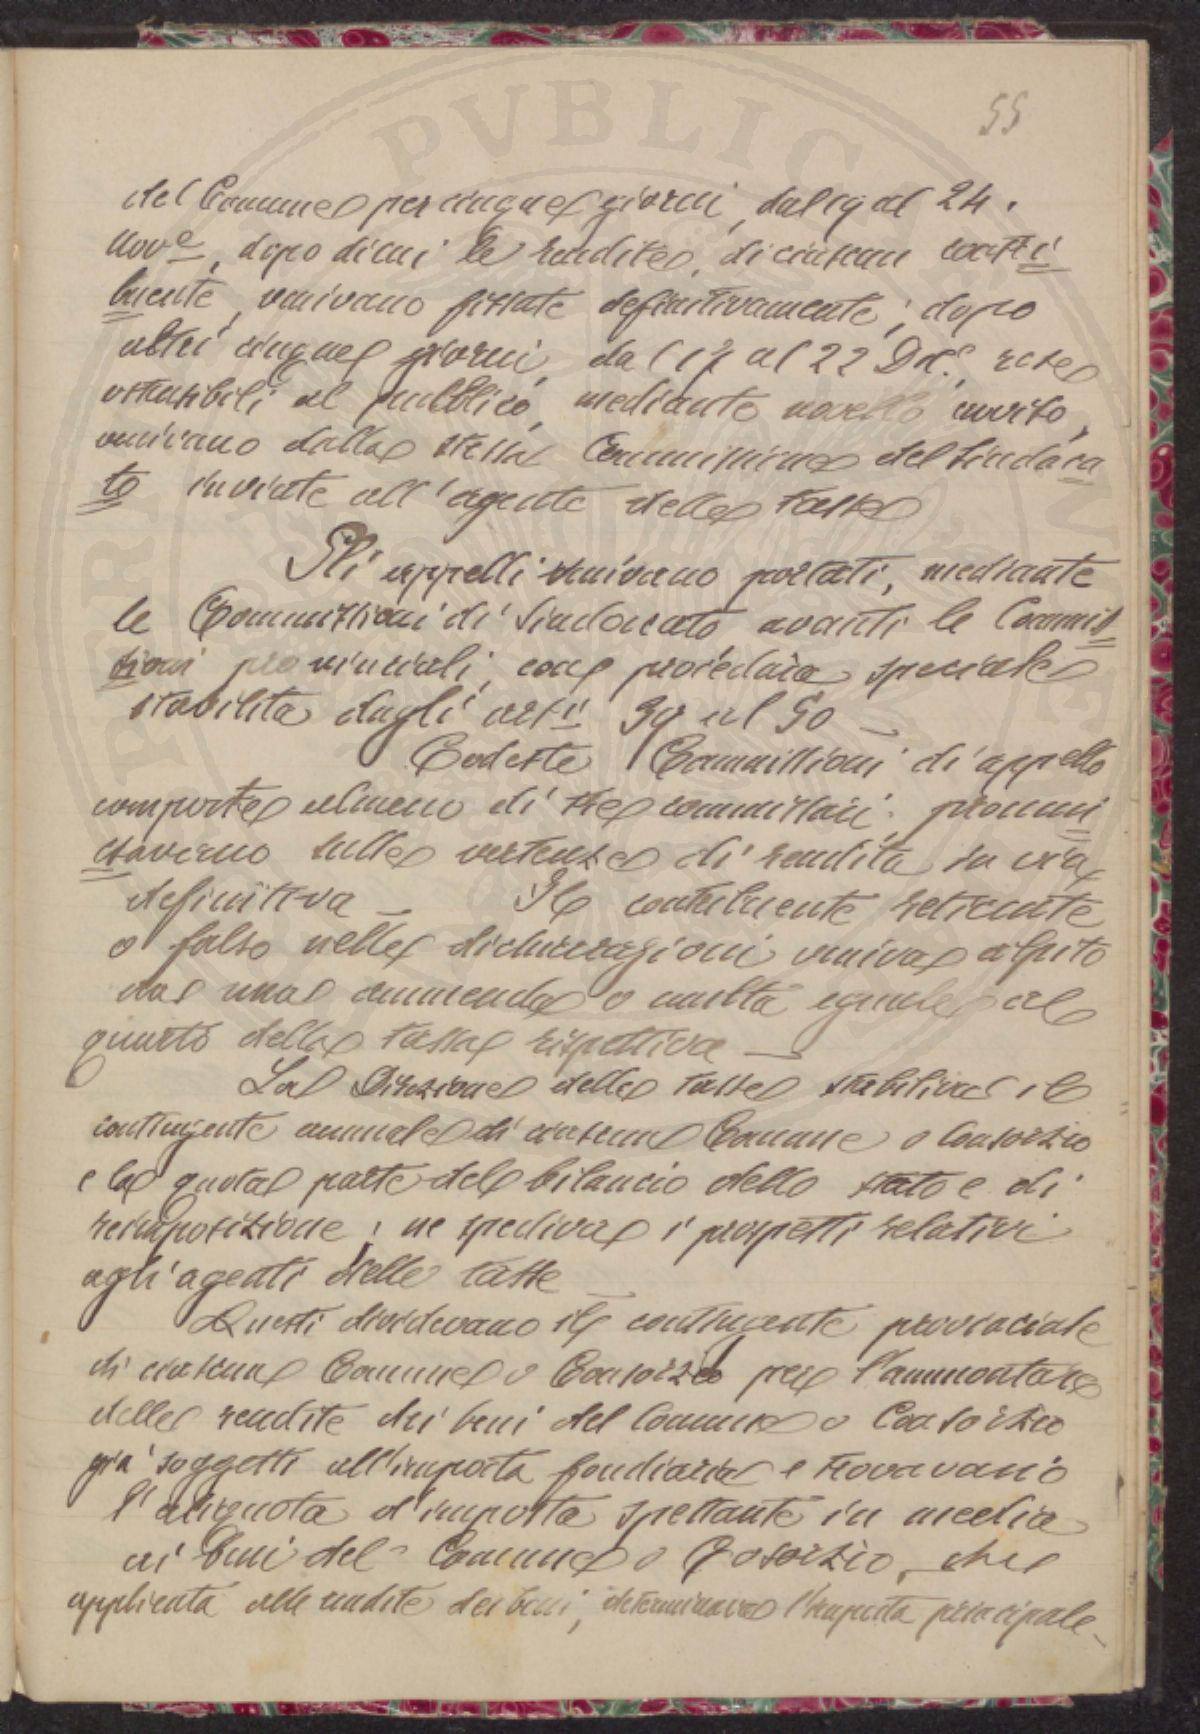 55
del Comune per cinque giorni, dal 19 al 24.
Nov.e, dopo di cui le rendite, di ciascun contri
buente, venivano fissate definitivamente; dopo
altri cinque giorni, dal 17 al 22 Dic.e, rese
ostensibili al pubblico, mediante novello invito,
venivano dalla stessa Commissione del Sindaca
to inviate all'agente delle tasse
Gli appelli venivano portati, mediante
le Commissioni di Sindacato avanti le Commis
sioni provinciali, con procedura speciale
stabilita dagli art.i 39 al 50 —
Codeste Commissioni di appello
composte almeno di tre commissari, pronun
ciavano sulle vertenze di rendita in via
definitiva — Il contribuente reticente
o falso nelle dichiarazioni veniva colpito
da una ammenda o multa eguale al
quarto della tassa rispettiva —
La Direzione delle tasse stabiliva il
contingente annuale di ciascun Comune o Consorzio
e la quota parte del bilancio dello stato e di
reimposizione; ne spediva i prospetti relativi
agli agenti delle tasse —
Questi dividevano il contingente provinciale
di ciascun Comune o Consorzio per l'ammontare
delle rendite dei beni del Comune o Consorzio
già soggetti all'imposta fondiaria e trovavano
l'aliquota d'imposta spettante in media
ai beni del Comune o Cosorzio, che
applicata alle rendite dei beni, determinava l'imposta principale —
PVBLICA